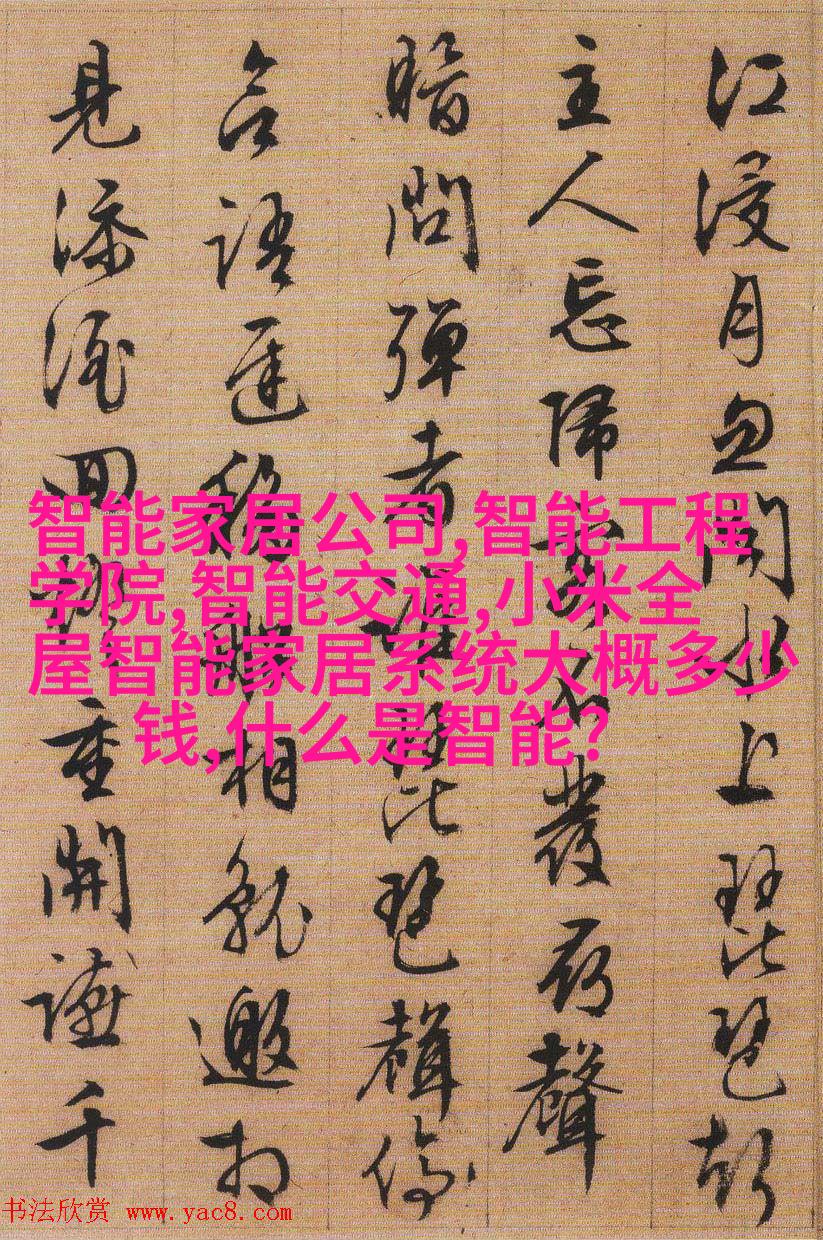 江浸月忽聞水上琵琶聲
主人忘歸客不發尋聲
暗問彈者誰琵琶聲停
語遲移船相就邀相
見添酒回燈重開讌千
智能家居公司,智能工程
学院,智能交通,小米全
屋智能家居系统大概多少
钱,什么是智能?
书法欣赏 www.yac8.com